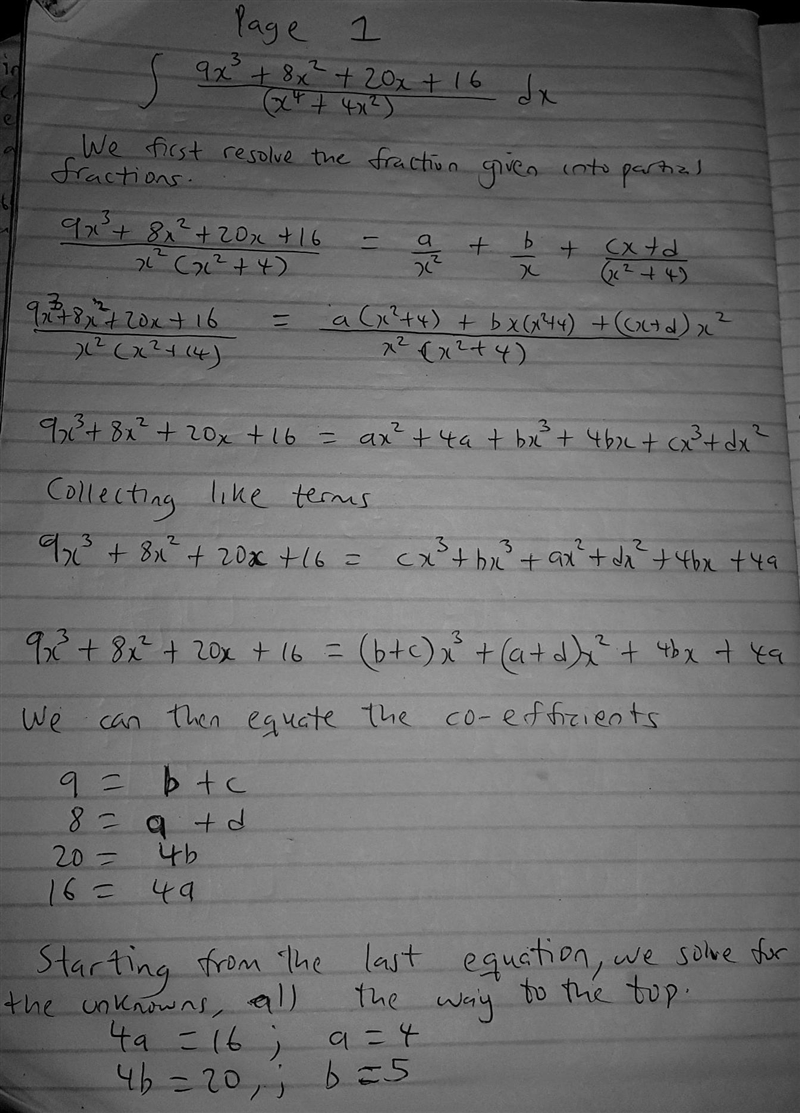 Page 1
∫ 9x³ + 8x² + 20x + 16 / (x⁴ + 4x²) dx
We first resolve the fraction given into partial
fractions.
9x³ + 8x² + 20x + 16 / x²(x² + 4) = a/x² + b/x + cx + d/(x² + 4)
9x³ + 8x² + 20x + 16 / x²(x² + (4) = a(x²+4) + bx(x²+4) + (cx+d)x² / x²(x² + 4)
9x³ + 8x² + 20x + 16 = ax² + 4a + bx³ + 4bx + cx³ + dx²
Collecting like terms
9x³ + 8x² + 20x + 16 = cx³ + bx³ + ax² + dx² + 4bx + 4a
9x³ + 8x² + 20x + 16 = (b+c)x³ + (a+d)x² + 4bx + 4a
We can then equate the co-efficients
9 = b + c
8 = a + d
20 = 4b
16 = 4a
Starting from the last equation, we solve for
the unknowns, all the way to the top.
4a = 16 ; a = 4
4b = 20, ; b = 5